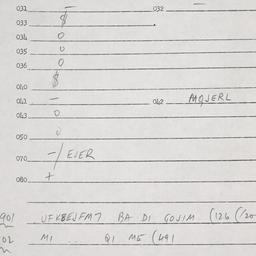 031 — 032 —
033 $
034 0
035 0
036 0
$
040
041 — 042 MQJERL
043 0
050
070 -/EJER
080 +
901 UFKBEJFM7 BA DI GOVIM (126 (20
02 MI QI ME (491